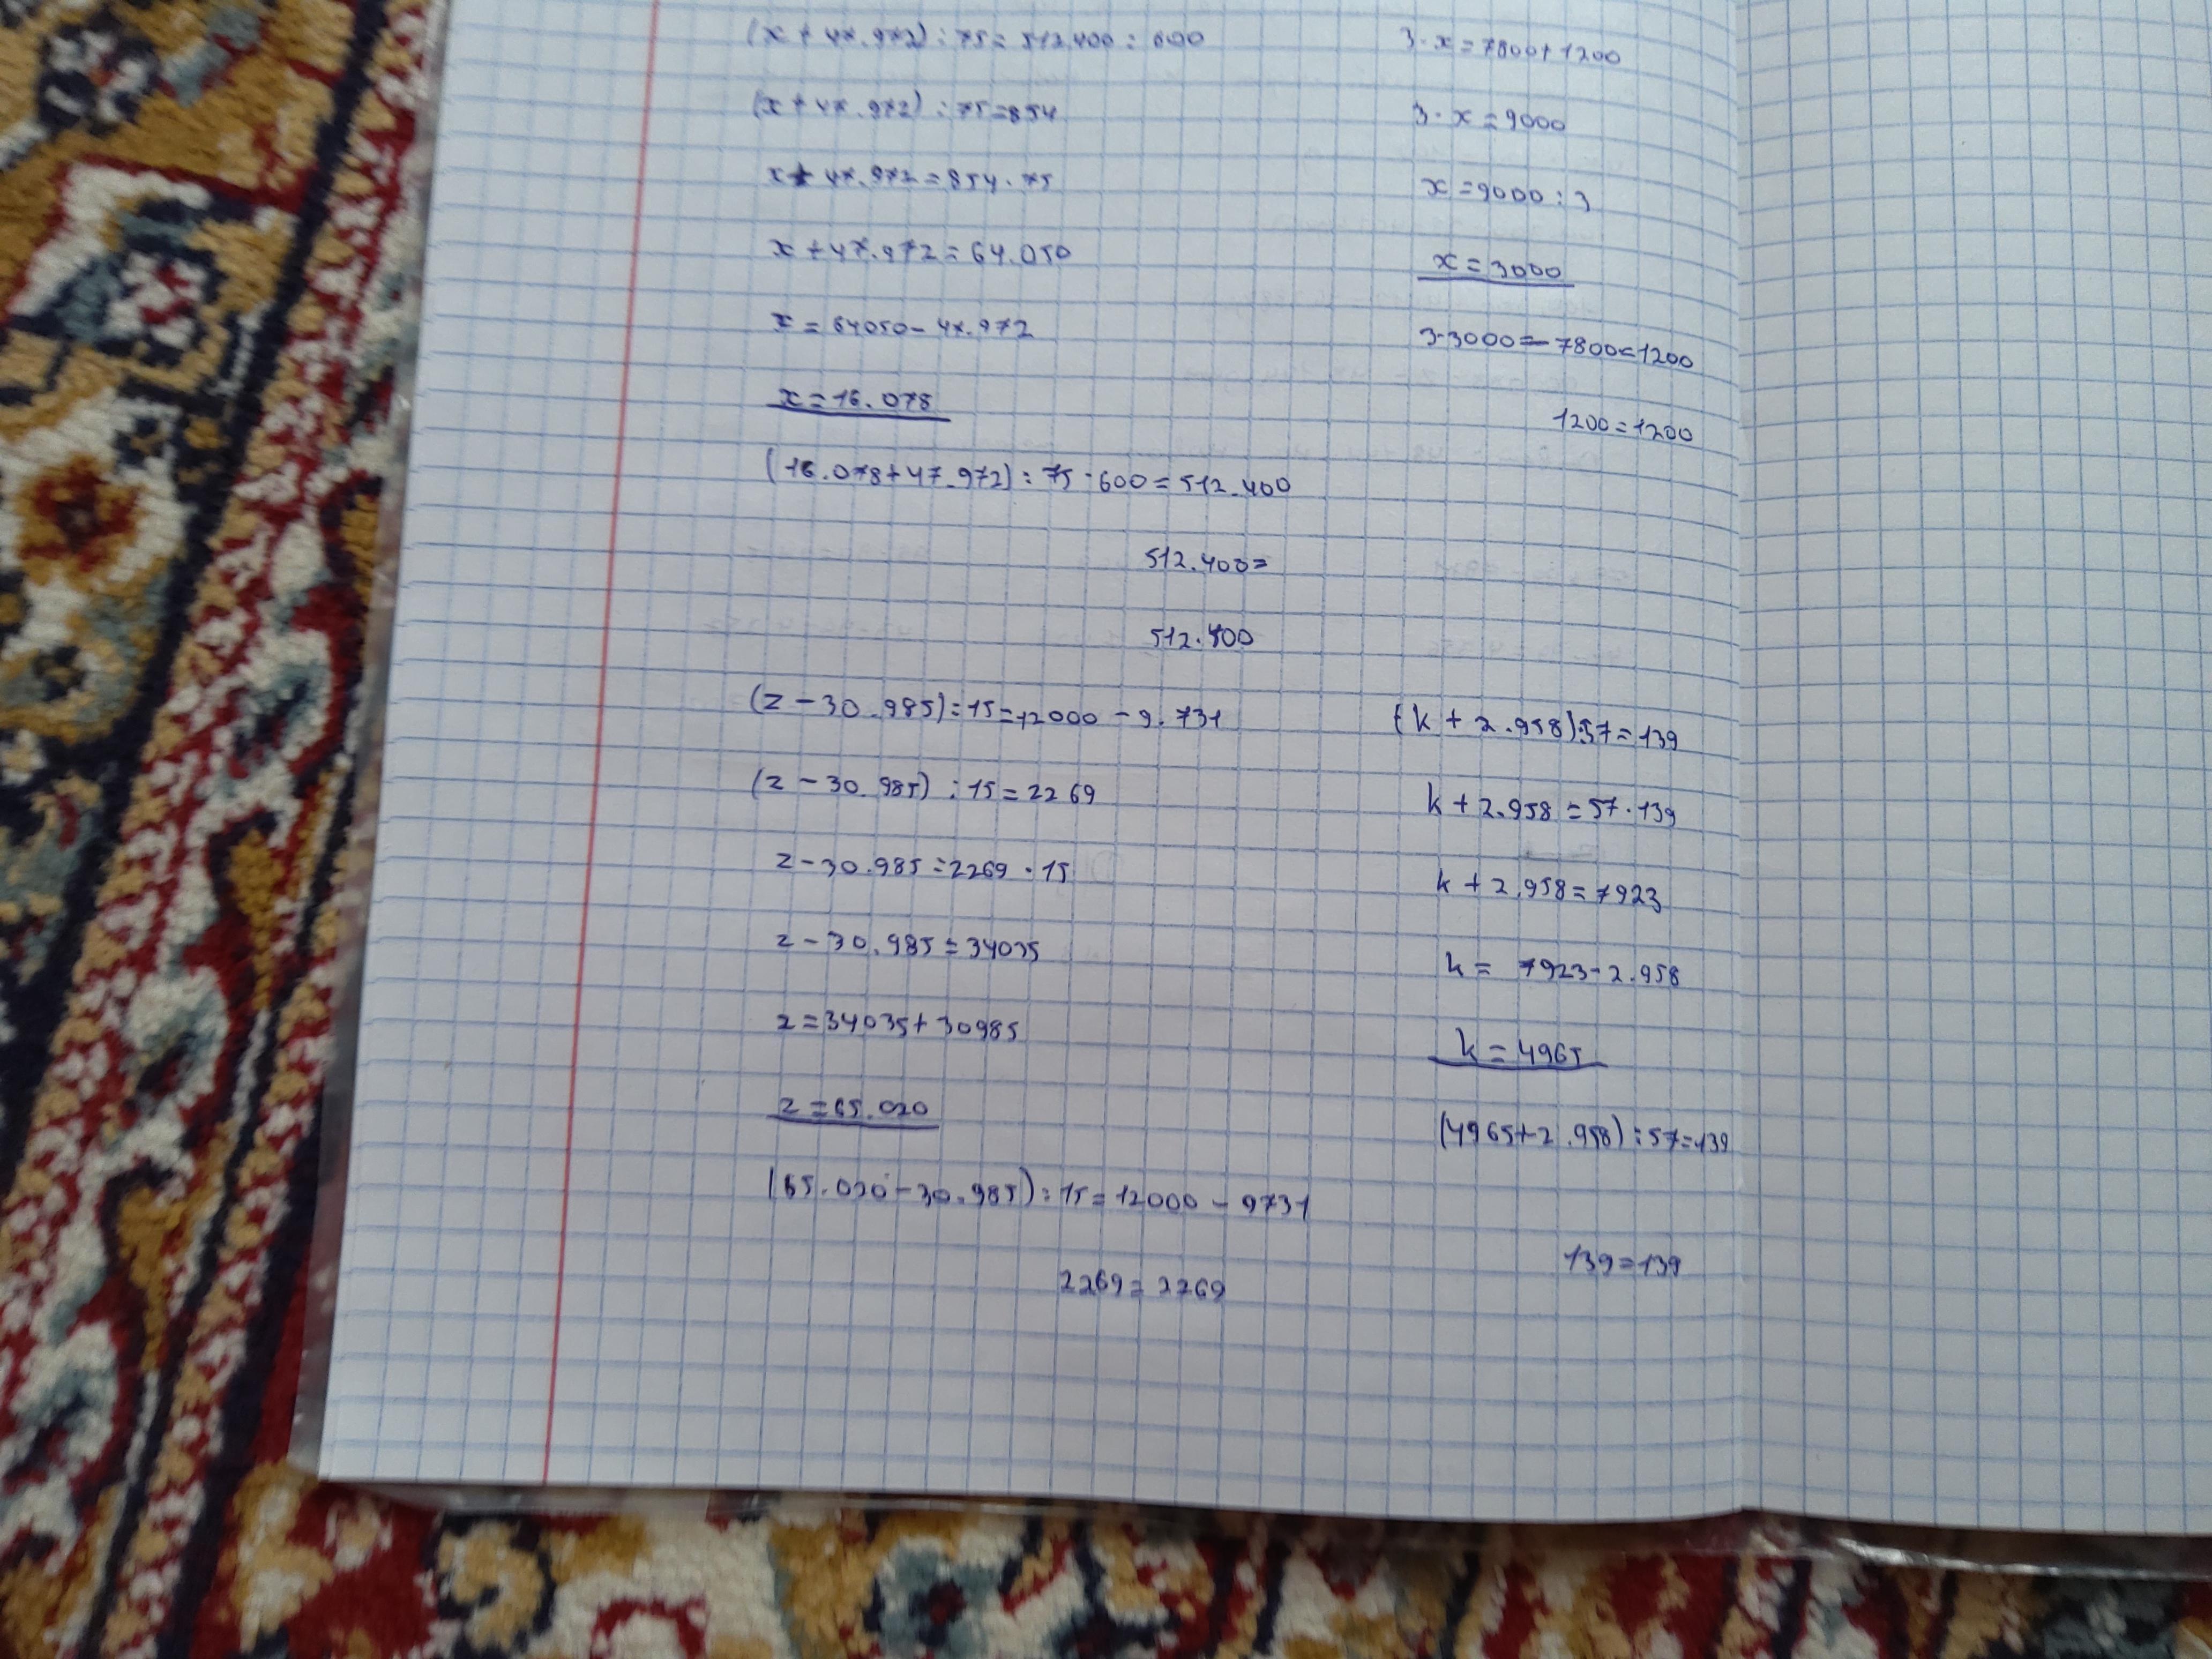 (x + 47.972) : 75 = 512.400 : 600
(x + 47.972) : 75 = 854
x + 47.972 = 854 · 75
x + 47.972 = 64.050
x = 64050 - 47.972
x = 16.078
(16.078 + 47.972) : 75 · 600 = 512.400
512.400 =
512.400
3 · x = 7800 + 1200
3 · x = 9000
x = 9000 : 3
x = 3000
3 · 3000 = - 7800 = 1200
1200 = 1200
(z - 30.985) : 15 = 12000 - 9.731
(z - 30.985) : 15 = 2269
z - 30.985 = 2269 · 15
z - 30.985 = 34035
z = 34035 + 30985
z = 65.020
(65.020 - 30.985) : 15 = 12000 - 9731
2269 = 2269
(k + 2.958) : 57 = 139
k + 2.958 = 57 · 139
k + 2.958 = 7923
k = 7923 - 2.958
k = 4965
(4965 + 2.958) : 57 = 139
139 = 139